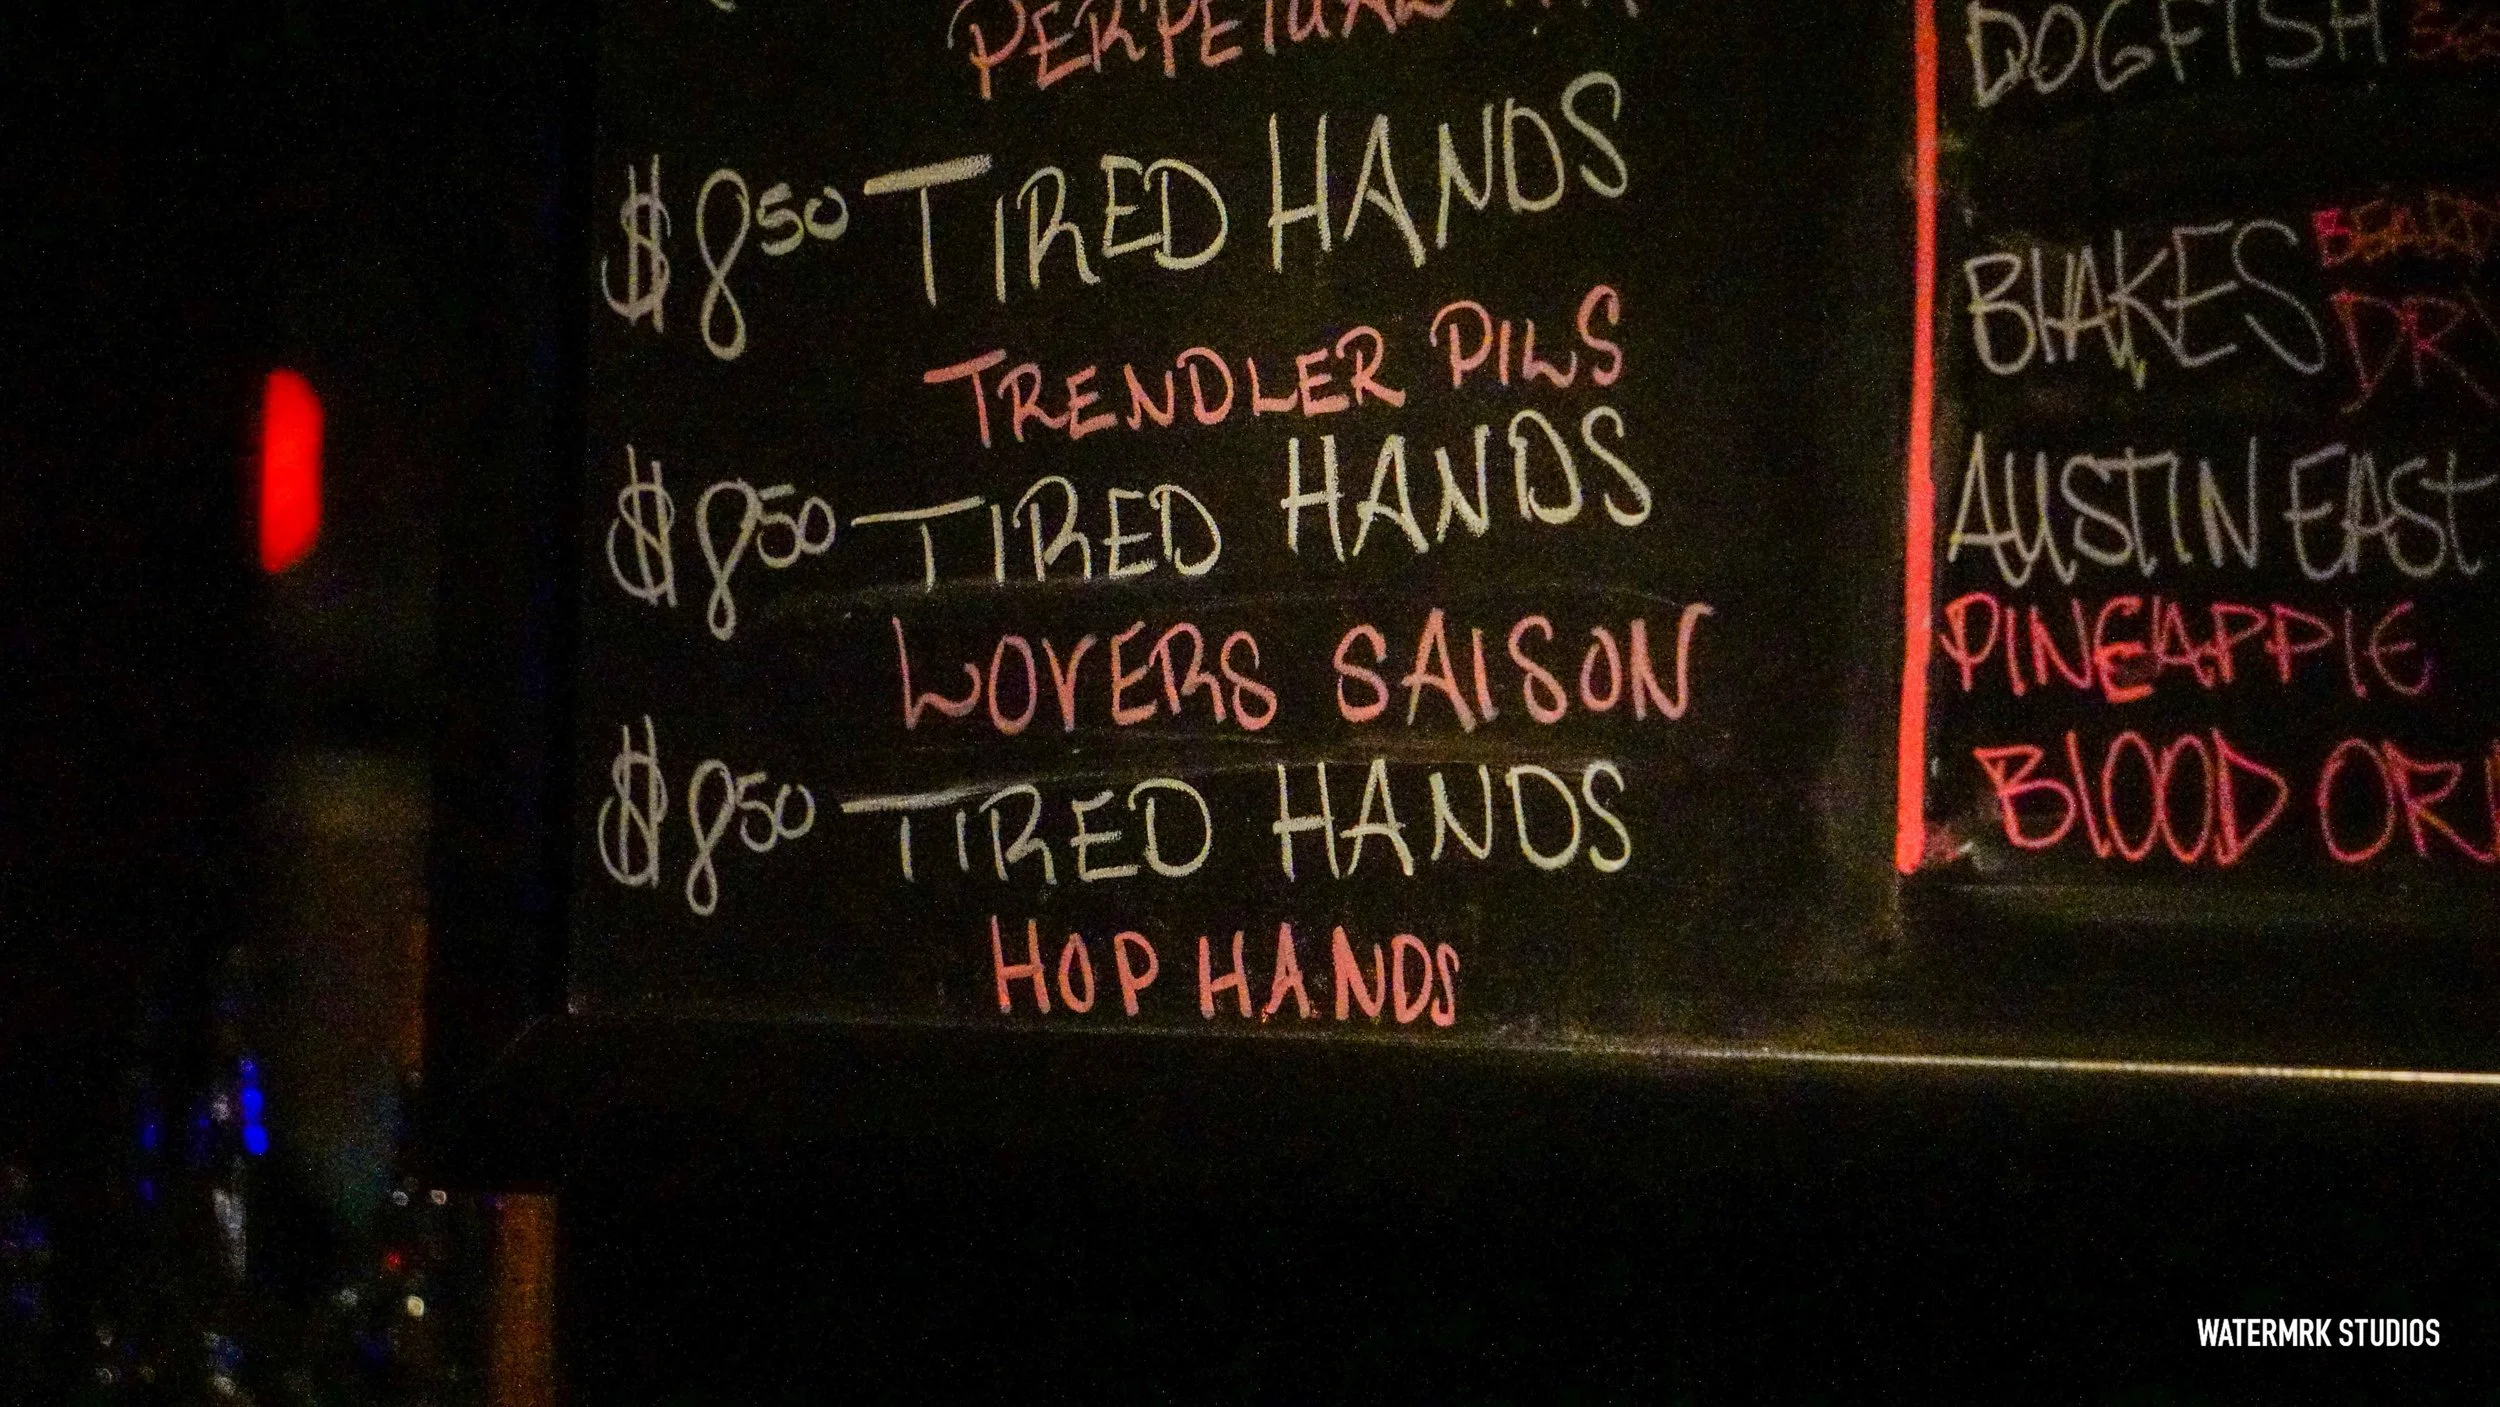 PERPETUAL
$8.50 TIRED HANDS
TRENDLER PILS
$8.50 TIRED HANDS
LOVERS SAISON
$8.50 TIRED HANDS
HOP HANDS
DOGFISH
BLAKES BEARD
DRY
AUSTIN EAST
PINEAPPLE
BLOOD OR
WATERMRK STUDIOS